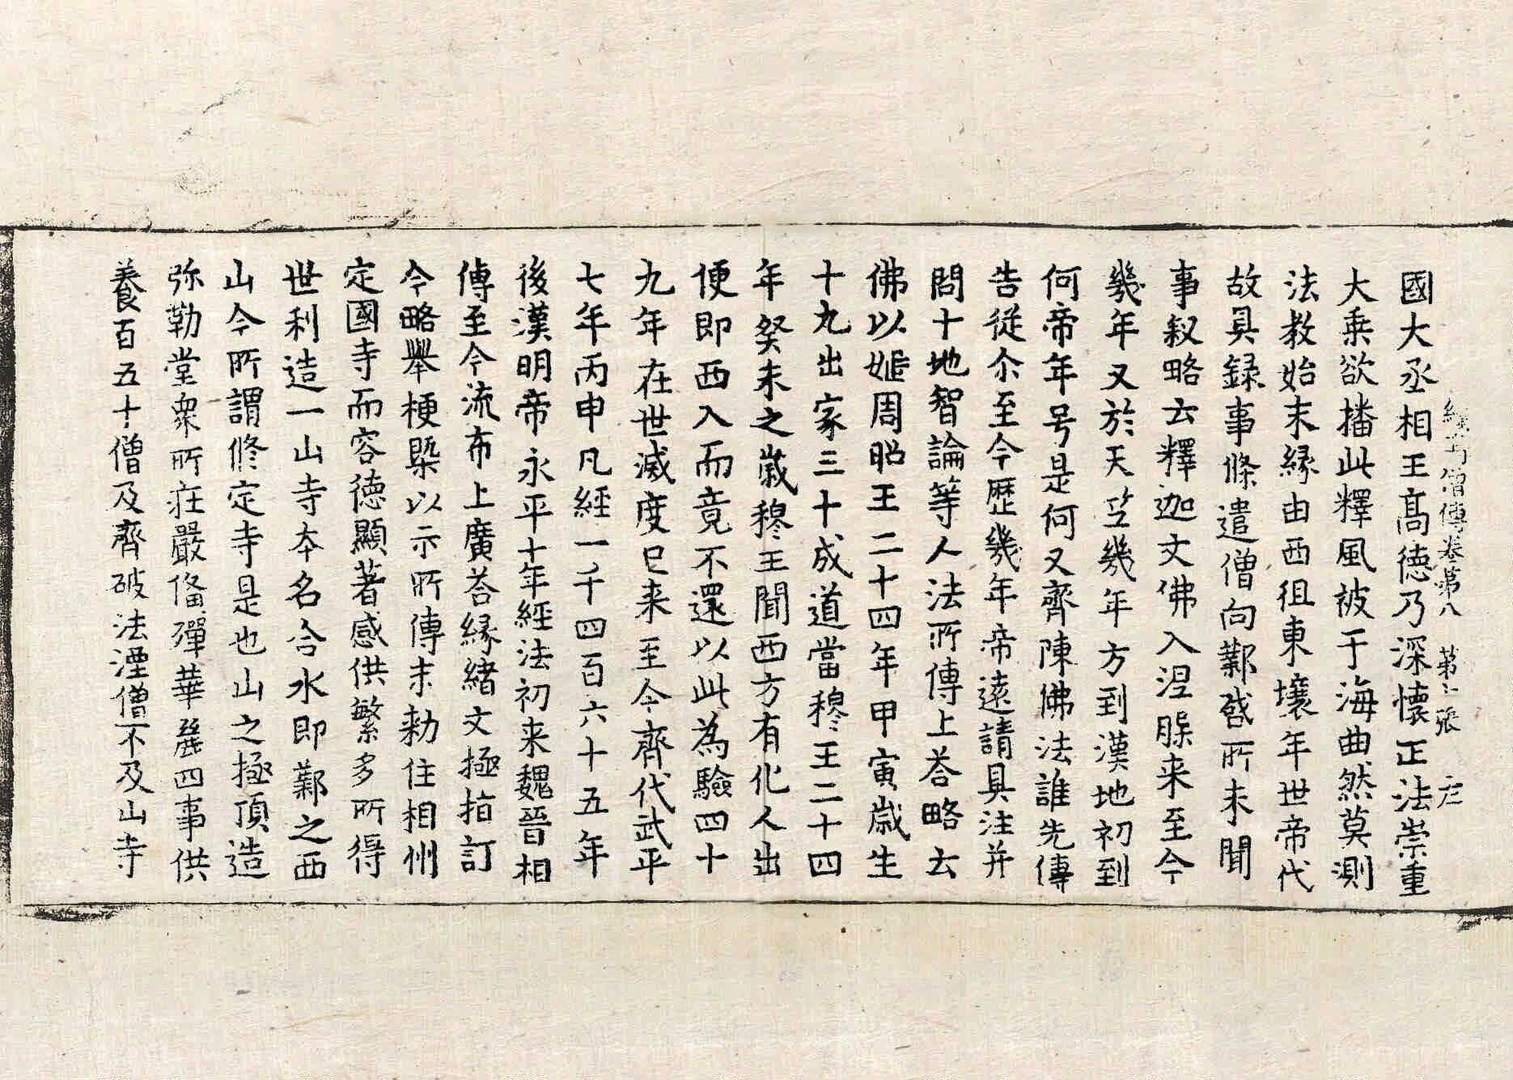 續高僧傳卷第八　第七張　左
國大丞相王高德乃深懷正法崇重
大乗欲播此釋風被于海曲然莫測
法教始末縁由西徂東壤年世帝代
故具録事條遣僧向鄴啓所未聞
事叙略云釋迦文佛入涅槃来至今
幾年又於天竺幾年方到漢地初到
何帝年号是何又齊陳佛法誰先傳
告従尒至今歷幾年帝遠請具注并
問十地智論等人法所傳上荅略云
佛以姬周昭王二十四年甲寅歳生
十九出家三十成道當穆王二十四
年癸未之歳穆王聞西方有化人出
便即西入而竟不還以此為驗四十
九年在世滅度已来至今齊代武平
七年丙申凡經一千四百六十五年
後漢明帝永平十年經法初来魏晉相
傳至今流布上廣荅縁緒文極指訂
今略舉梗槩以示所傳末勅住相州
定國寺而容德顯著感供繁多所得
世利造一山寺本名合水即鄴之西
山今所謂修定寺是也山之極頂造
弥勒堂衆所莊嚴俻殫華麗四事供
養百五十僧及齊破法湮僧不及山寺